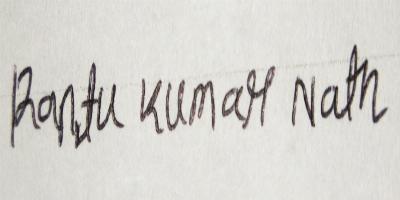 Rantu Kumar Nath